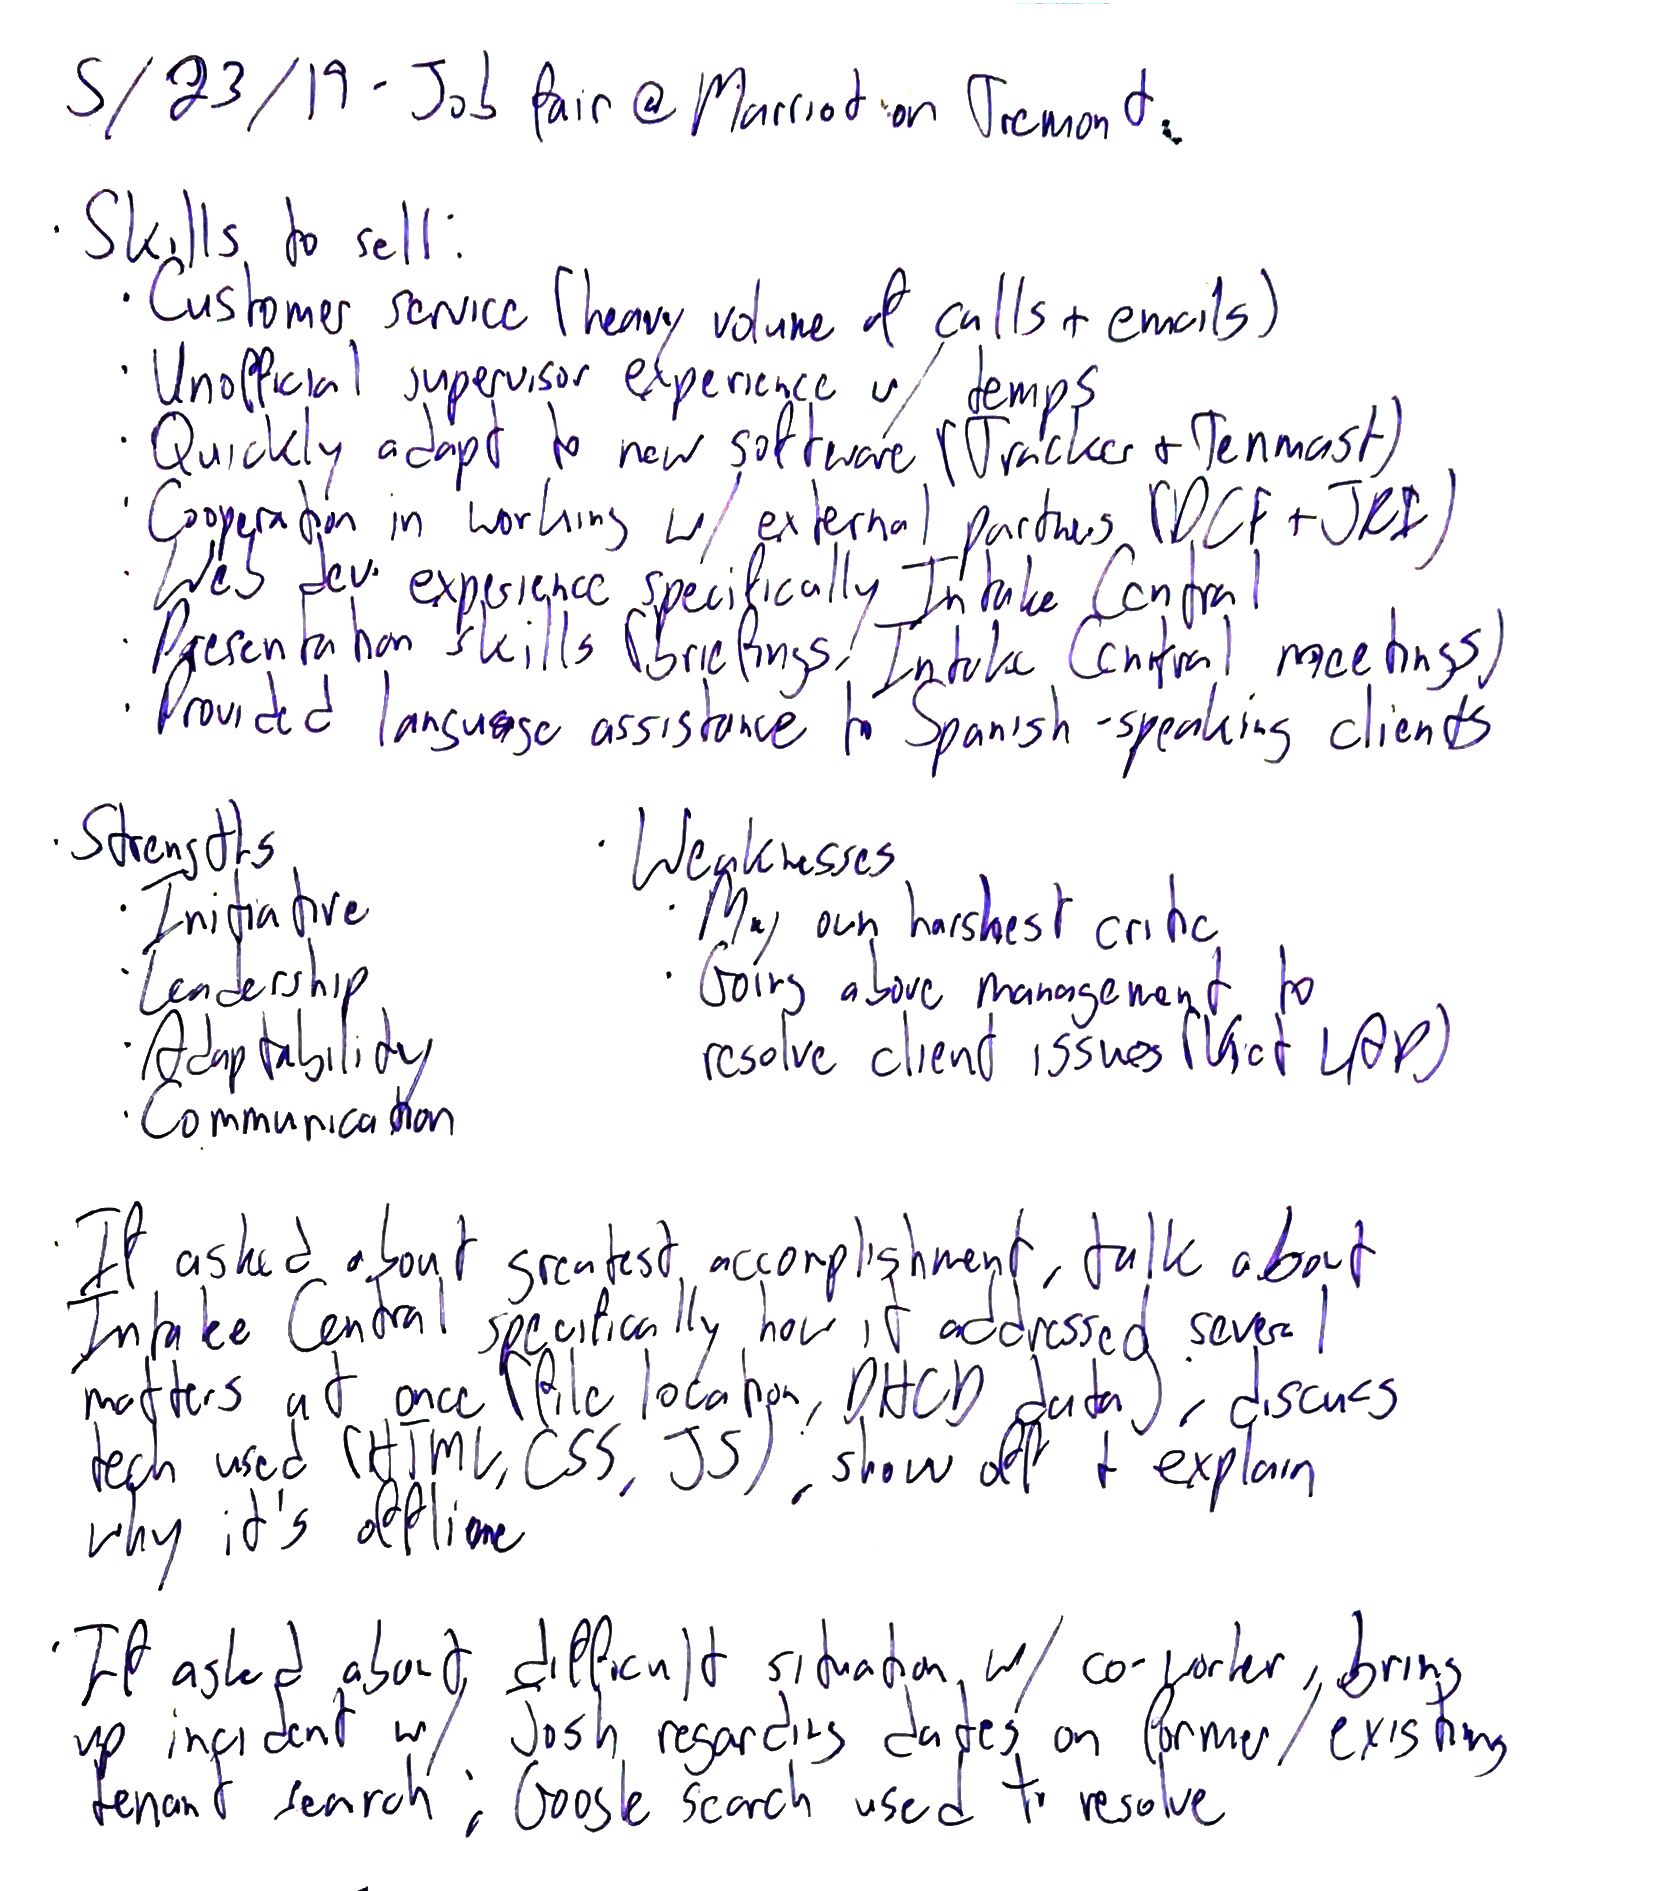 5/23/19 - Job fair @ Marriot on Tremont.
· Skills to sell:
· Customer service (heavy volume of calls + emails)
· Unofficial supervisor experience w/ temps
· Quickly adapt to new software (Tracker + Tenmast)
· Cooperation in working w/ external partners (DCF + JRI)
· Web dev. experience specifically Intake Central
· Presentation skills (briefings, Intake Central meetings)
· Provided language assistance to Spanish-speaking clients
· Strengths
· Initiative
· Leadership
· Adaptability
· Communication
· Weaknesses
· My own harshest critic
· Going above management to
resolve client issues (
· If asked about greatest accomplishment, talk about
Intake Central specifically how it addressed several
matters at once (file location, DHCD data), discuss
tech used (HTML, CSS, JS), show off + explain
why it's offline
· If asked about difficult situation w/ co-worker, bring
up incident w/ Josh regarding dates on former/existing
tenant search; Google search used to resolve